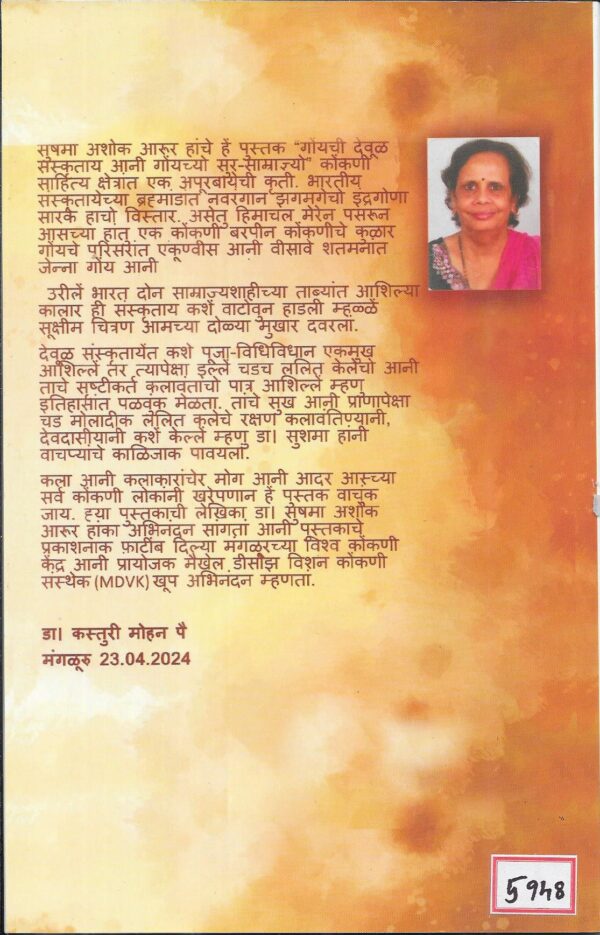 सुषमा अशोक आरूर हांचे हें पुस्तक “गोंयची देवूळ
संस्कृताय आनी गोंयच्यो सूर-साम्राज्यो” कोंकणी
साहित्य क्षेत्रांत एक अपूरबायेची कृती. भारतीय
संस्कृतायेच्या ब्रह्मांडांत नवरंगान झगमगेचो इंद्रगोणा
सारकें हाचो विस्तार. असेतु हिमाचल मेरेन पसरून
आसच्या हातु एक कोंकणी बरपीन कोंकणीचे कुळार
गोंयचे परिसरांत एकूणवीस आनी वीसावे शतमनांत
जेन्ना गोंय आनी
उरीलें भारत दोन साम्राज्यशाहीच्या ताब्यांत आशिल्या
काळार ही संस्कृताय कशें वाटोवून हाडली म्हळ्ळें
सूक्षीम चित्रण आमच्या दोळ्या मुखार दवरलां.
देवूळ संस्कृतायेंत कशे पूजा-विधिविधान एकमुख
आशिल्ले तर त्यापेक्षा इल्ले चडच ललित कलेचो आनी
ताचे सृष्टीकर्त कलावंतांचो पात्र आशिल्ले म्हण
इतिहासांत पळवंक मेळता. तांचे सुख आनी प्राणापेक्षा
चड मोलादीक ललित कलेचे रक्षण कलावंतिण्यानी,
देवदासीयांनी कशें केल्लें म्हणु डा। सुशमा हांनी
वाचप्यांचे काळिजाक पावयलां.
कला आनी कलाकारांचेर मोग आनी आदर आसच्या
सर्व कोंकणी लोकांनी खरेपणान हें पुस्तक वाचूंक
जाय. ह्या पुस्तकाची लेखिका डा। सुषमा अशोक
आरूर हांका अभिनंदन सांगता आनी पुस्तकाचे
प्रकाशनाक फाटींब दिल्या मंगळूरच्या विश्व कोंकणी
केंद्र आनी प्रायोजक मैखेल डीसोझ विशन कोंकणी
संस्थेक (MDVK) खूप अभिनंदन म्हणता.
डा। कस्तुरी मोहन पै
मंगळूरु 23.04.2024
5948